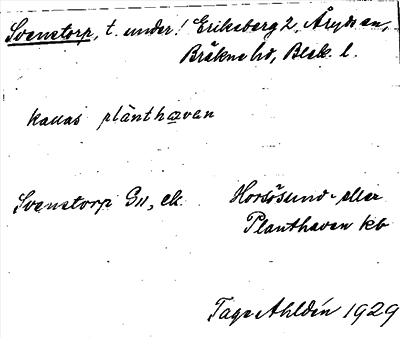 Svenstorp, t. under! Eriksberg 2, Åryds sn,
Bräkne hd, Blek. l.
kallas plànthavan
Svenstorp G11, ek. Horsösund- eller
Planthaven kb
Tage Ahldén 1929